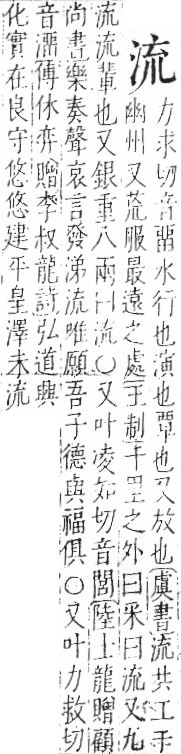 流力求切音畱水行也演也覃也又放也虞書流共工于
幽州又荒服最遠之處王制千里之外曰采曰流又九
流流輩也又銀重八兩曰流○又叶凌如切音閭陸士龍贈顧
尚書樂奏聲哀言發涕流唯願吾子德與福俱○又叶力救切
音溜傅休弈贈李叔龍詩弘道興
化實在良守悠悠建平皇澤未流